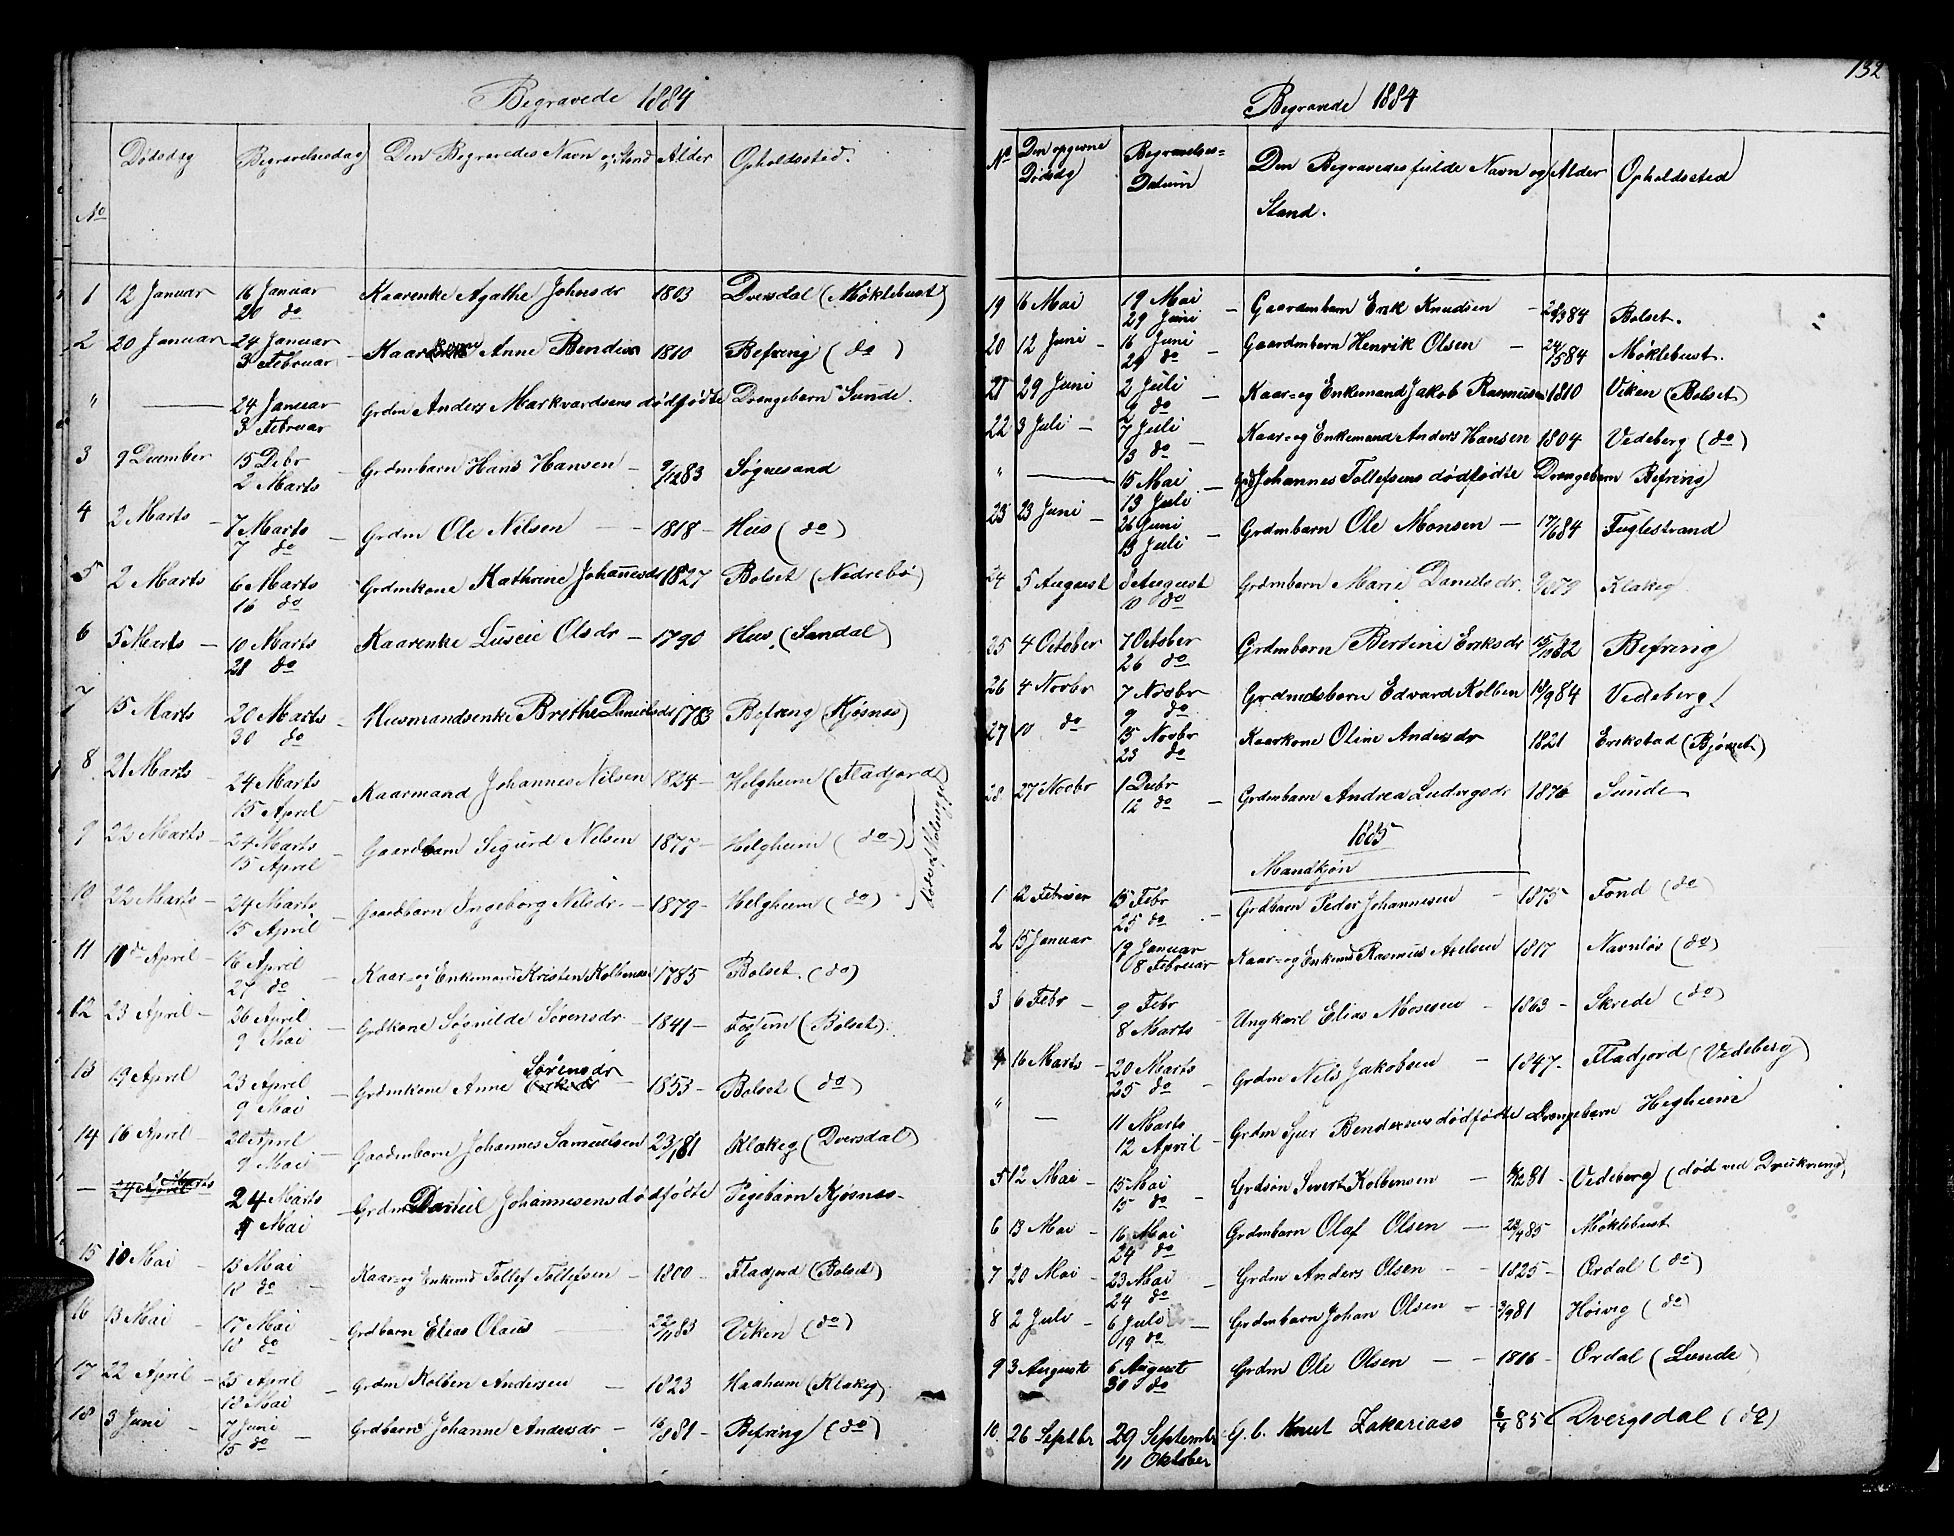 Begravede 1884
No Dødsdag Begravelsesdag Den Begravedes Navn og Stand Alder Opholdssted.
1 12 Januar 16 Januar Kaarenke Agathe Johnsdr 1803 Dversdal (Møklebust)
20 do
2 20 Januar 24 Januar Anne Bendixs 1810 Befring (do)
3 Februar
" — 24 Januar Grdm Anders Markvardsens dødfødte Drengebarn Sunde.
3 Februar
3 9 December 15 Debr Grdmbarn Hans Hansen 9/1283 Søgnesand
2 Marts
4 2 Marts 7 Marts Grdm Ole Nilsen 1818 Hus (do)
7 do
5 2 Marts 6 Marts Grdmkone Kathrine Johannesdr 1827 Bolset (Nedrebø)
16 do
6 5 Marts 10 Marts Kaarenke Luscie Olsdr 1790 Hus. (Sandal)
28 do
7 15 Marts 20 Marts Husmandsenke Brethe Danielsdr 1783 Befring (Kjøsnes)
30 do
8 21 Marts 24 Marts Kaarmand Johannes Nilsen 1824 Helgheim (Fladjord)
15 April
9 22 Marts 24 Marts Gaardbarn Sigurd Nilsen 1877 Helgheim (do)
15 April
10 22 Marts 24 Marts Gaardbarn Ingeborg Nilsdr 1879 Helgheim (do)
15 April
11 April 16 April Kaar- og Enkemand Kristen Kolbensen 1785 Bolset. (do)
27 do
12 23 April 26 April Grdkone Søgnilde Sørensdr 1841 Fossum (Bolset).
9 Mai
13 19 April 23 April Grdmkone Anne Sørensdr 1853 Bolset (do)
9 Mai
14 16 April 20 April Gaardmbarn Johannes Samuelsen 81 Klakeg (Dversdal)
9 Mai
— 24 Marts Grdm Daniel Johannesens dødfødte Pigebarn Kjøsnes
9 Mai
15 10 Mai 13 Mai Kaar- og Enkemd Tollef Tollefsen 1800 Fladjord (Bolset)
18 do
16 13 Mai 17 Mai Grdbarn Elias Olaus 22/1183 Viken (do)
18 do
17 22 April 25 April Grdm Kolben Andersen 1823 Haaheim (Klakeg)
18 Mai
18 3 Juni 7 Juni Grdbarn Johanne Andersdr 81 Befring (do)
15 do
132
Begravede 1884
No Den opgivne Dødsdag Begravelses= Datum Den Begravedes fulde Navn og Stand. Alder Opholdssted
19 16 Mai 19 Mai Gaardmbarn Erik Knudsen 84 Bolset.
29 Juni
20 12 Juni 16 Juni Gaardmbarn Henrik Olsen 24/584 Møklebust.
29 do
21 29 Juni 2 Juli Kaar- og Enkemand Jakob Rasmusen 1810 Viken (Bolset)
9 do
22 3 Juli 7 Juli Kaar- og Enkemand Anders Hansen 1804 Vedeberg (do)
13 do
" — 15 Mai Johannes Tollefsens dødfødte Drengebarn Befring
13 Juli
23 23 Juni 26 Juni Grdmbarn Ole Monsen 17/684 Fuglestrand
13 Juli
24 5 August 8 August Grdmbarn Marie Danielsdr. 79 Klakeg
10 do
25 4 October 7 October Grdmbarn Bertine Eriksdr 15/1082 Befring
26 do
26 4 Novbr 7 Novbr Grdmdsbarn Edvard Kolben 18/984 Vedeberg
9 do
27 10 do 15 Novbr Kaarkone Oline Andersdr 1821 Erikstad (Bjørset)
23 do
28 27 Novbr 1 Debr Grdmbarn Andrea Ludvigsdr 1876 Sunde
12 do
1885
Mandkjøn
1 12 Februar 15 Febr Grdbarn Peder Johannesen 1875 Fond (do)
25 do
2 15 Januar 19 Januar Kaar- og Enkemd Rasmus Axelsen 1817 Navnløs (do)
8 Februar
3 6 Febr 9 Febr Ungkarl Elias Mosesen 1863 Skrede (do)
8 Marts
4 16 Marts 20 Marts Grdm Nils Jakobsen 1847 Fladjord (Vedeberg)
25 do
" — 11 Marts Grdm Sjur Bendixsens dødfødte Drengebarn Hegheim
12 April
5 12 Mai 15 Mai Grdsøn Sivert Kolbensen 81 Vedeberg (død ved Drukning)
15 do
6 13 Mai 16 Mai Grdmbarn Olaf Olsen 23/485 Møklebust
24 do
7 20 Mai 23 Mai Grdm Anders Olsen 1825 Ordal (do)
24 do
8 2 Juli 6 Juli Grdmbarn Johan Olsen 3/981 Høivig (do)
19 do
9 3 August 6 August Grdm Ole Olsen 1816 Ordal (Lunde)
30 do
10. 26 Septbr 29 September G. b. Knut Zakariass 85 Dvergsdal (do)
11 Oktober